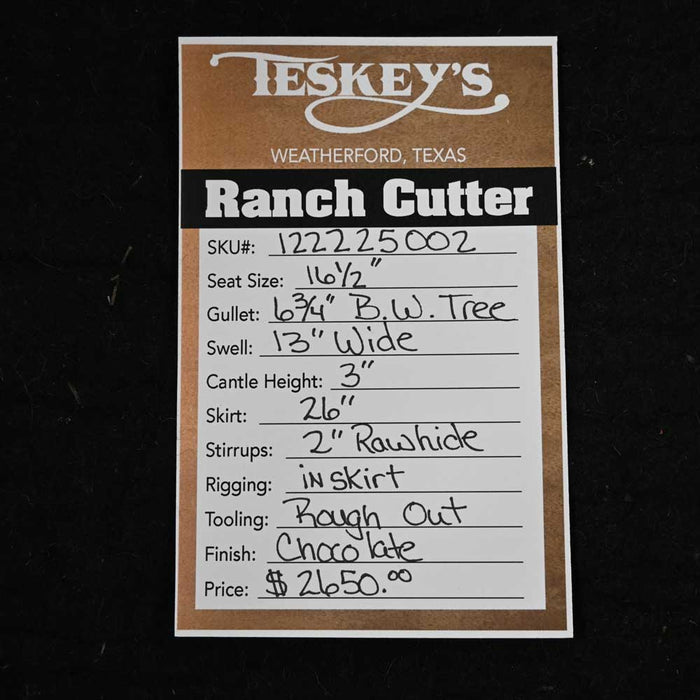 TESKEY'S
WEATHERFORD, TEXAS
Ranch Cutter
SKU#: 122225002
Seat Size: 16 1/2"
Gullet: 6 3/4" B.W. Tree
Swell: 13" Wide
Cantle Height: 3"
Skirt: 26"
Stirrups: 2" Rawhide
Rigging: in skirt
Tooling: Rough Out
Finish: Chocolate
Price: $2650.00